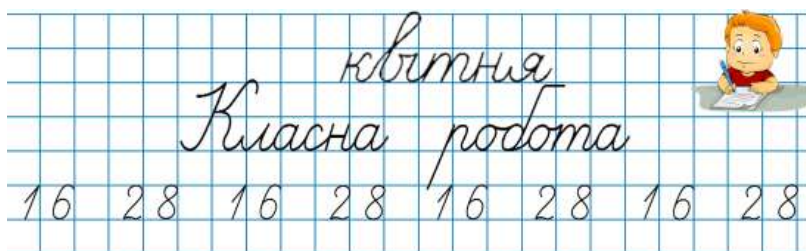 квітня
Класна робота
16 28 16 28 16 28 16 28